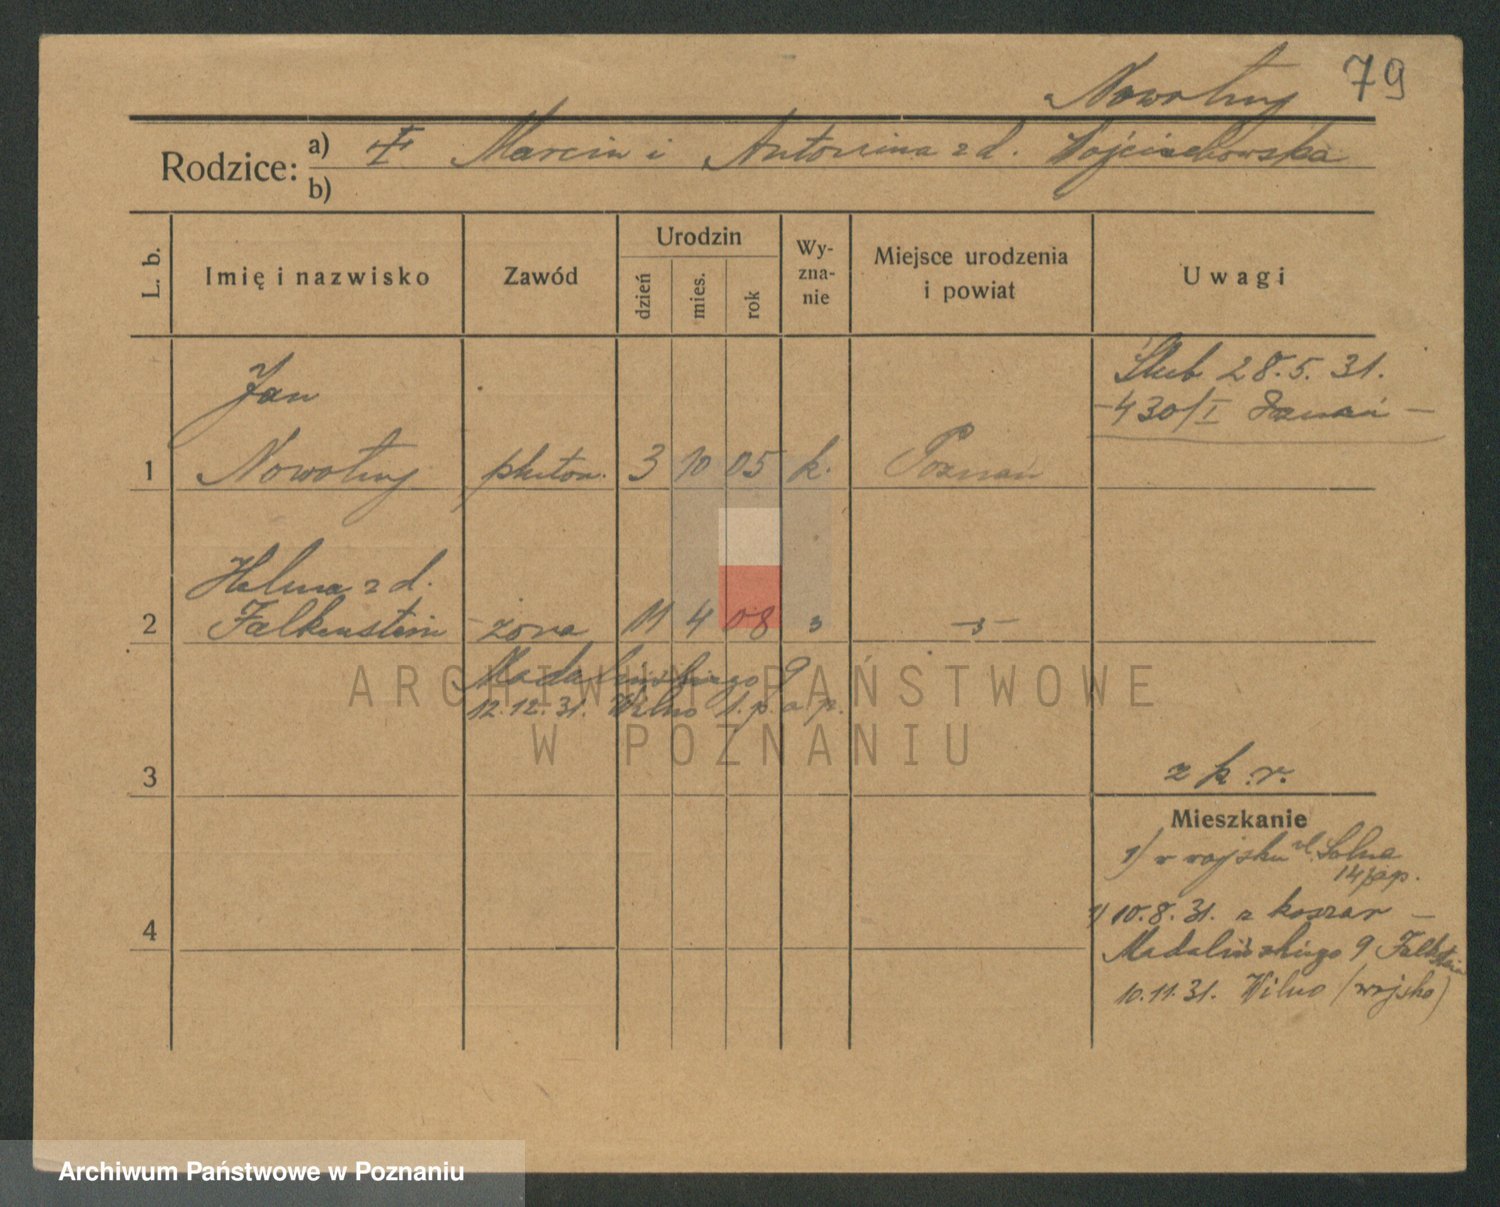 Nowotny 79
Rodzice: a) Marcin i Antonina z d. Wojciechowska
b)
L. b. Imię i nazwisko Zawód Urodzin dzień mies. rok Wy-zna-nie Miejsce urodzenia i powiat Uwagi
Ślub 28.5.31.
430/I Poznań
Jan
1 Nowotny pluton. 3 10 05 k. Poznań
Helena z d.
2 Falkenstein żona 11 4 08
Madalińskiego 9
12.12.31. Wilno 1. p. a p.
3
z k. r.
Mieszkanie
1) w wojsku ul. Solna
14 pap.
10.8.31. z koszar –
4
Madalińskiego 9 Falkstein
10.11.31. Wilno (wojsko)
ARCHIWUM PAŃSTWOWE
W POZNANIU
Archiwum Państwowe w Poznaniu